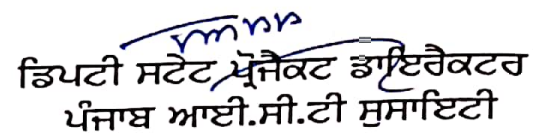 ਡਿਪਟੀ ਸਟੇਟ ਪ੍ਰੋਜੈਕਟ ਡਾਇਰੈਕਟਰ
ਪੰਜਾਬ ਆਈ.ਸੀ.ਟੀ ਸੁਸਾਇਟੀ